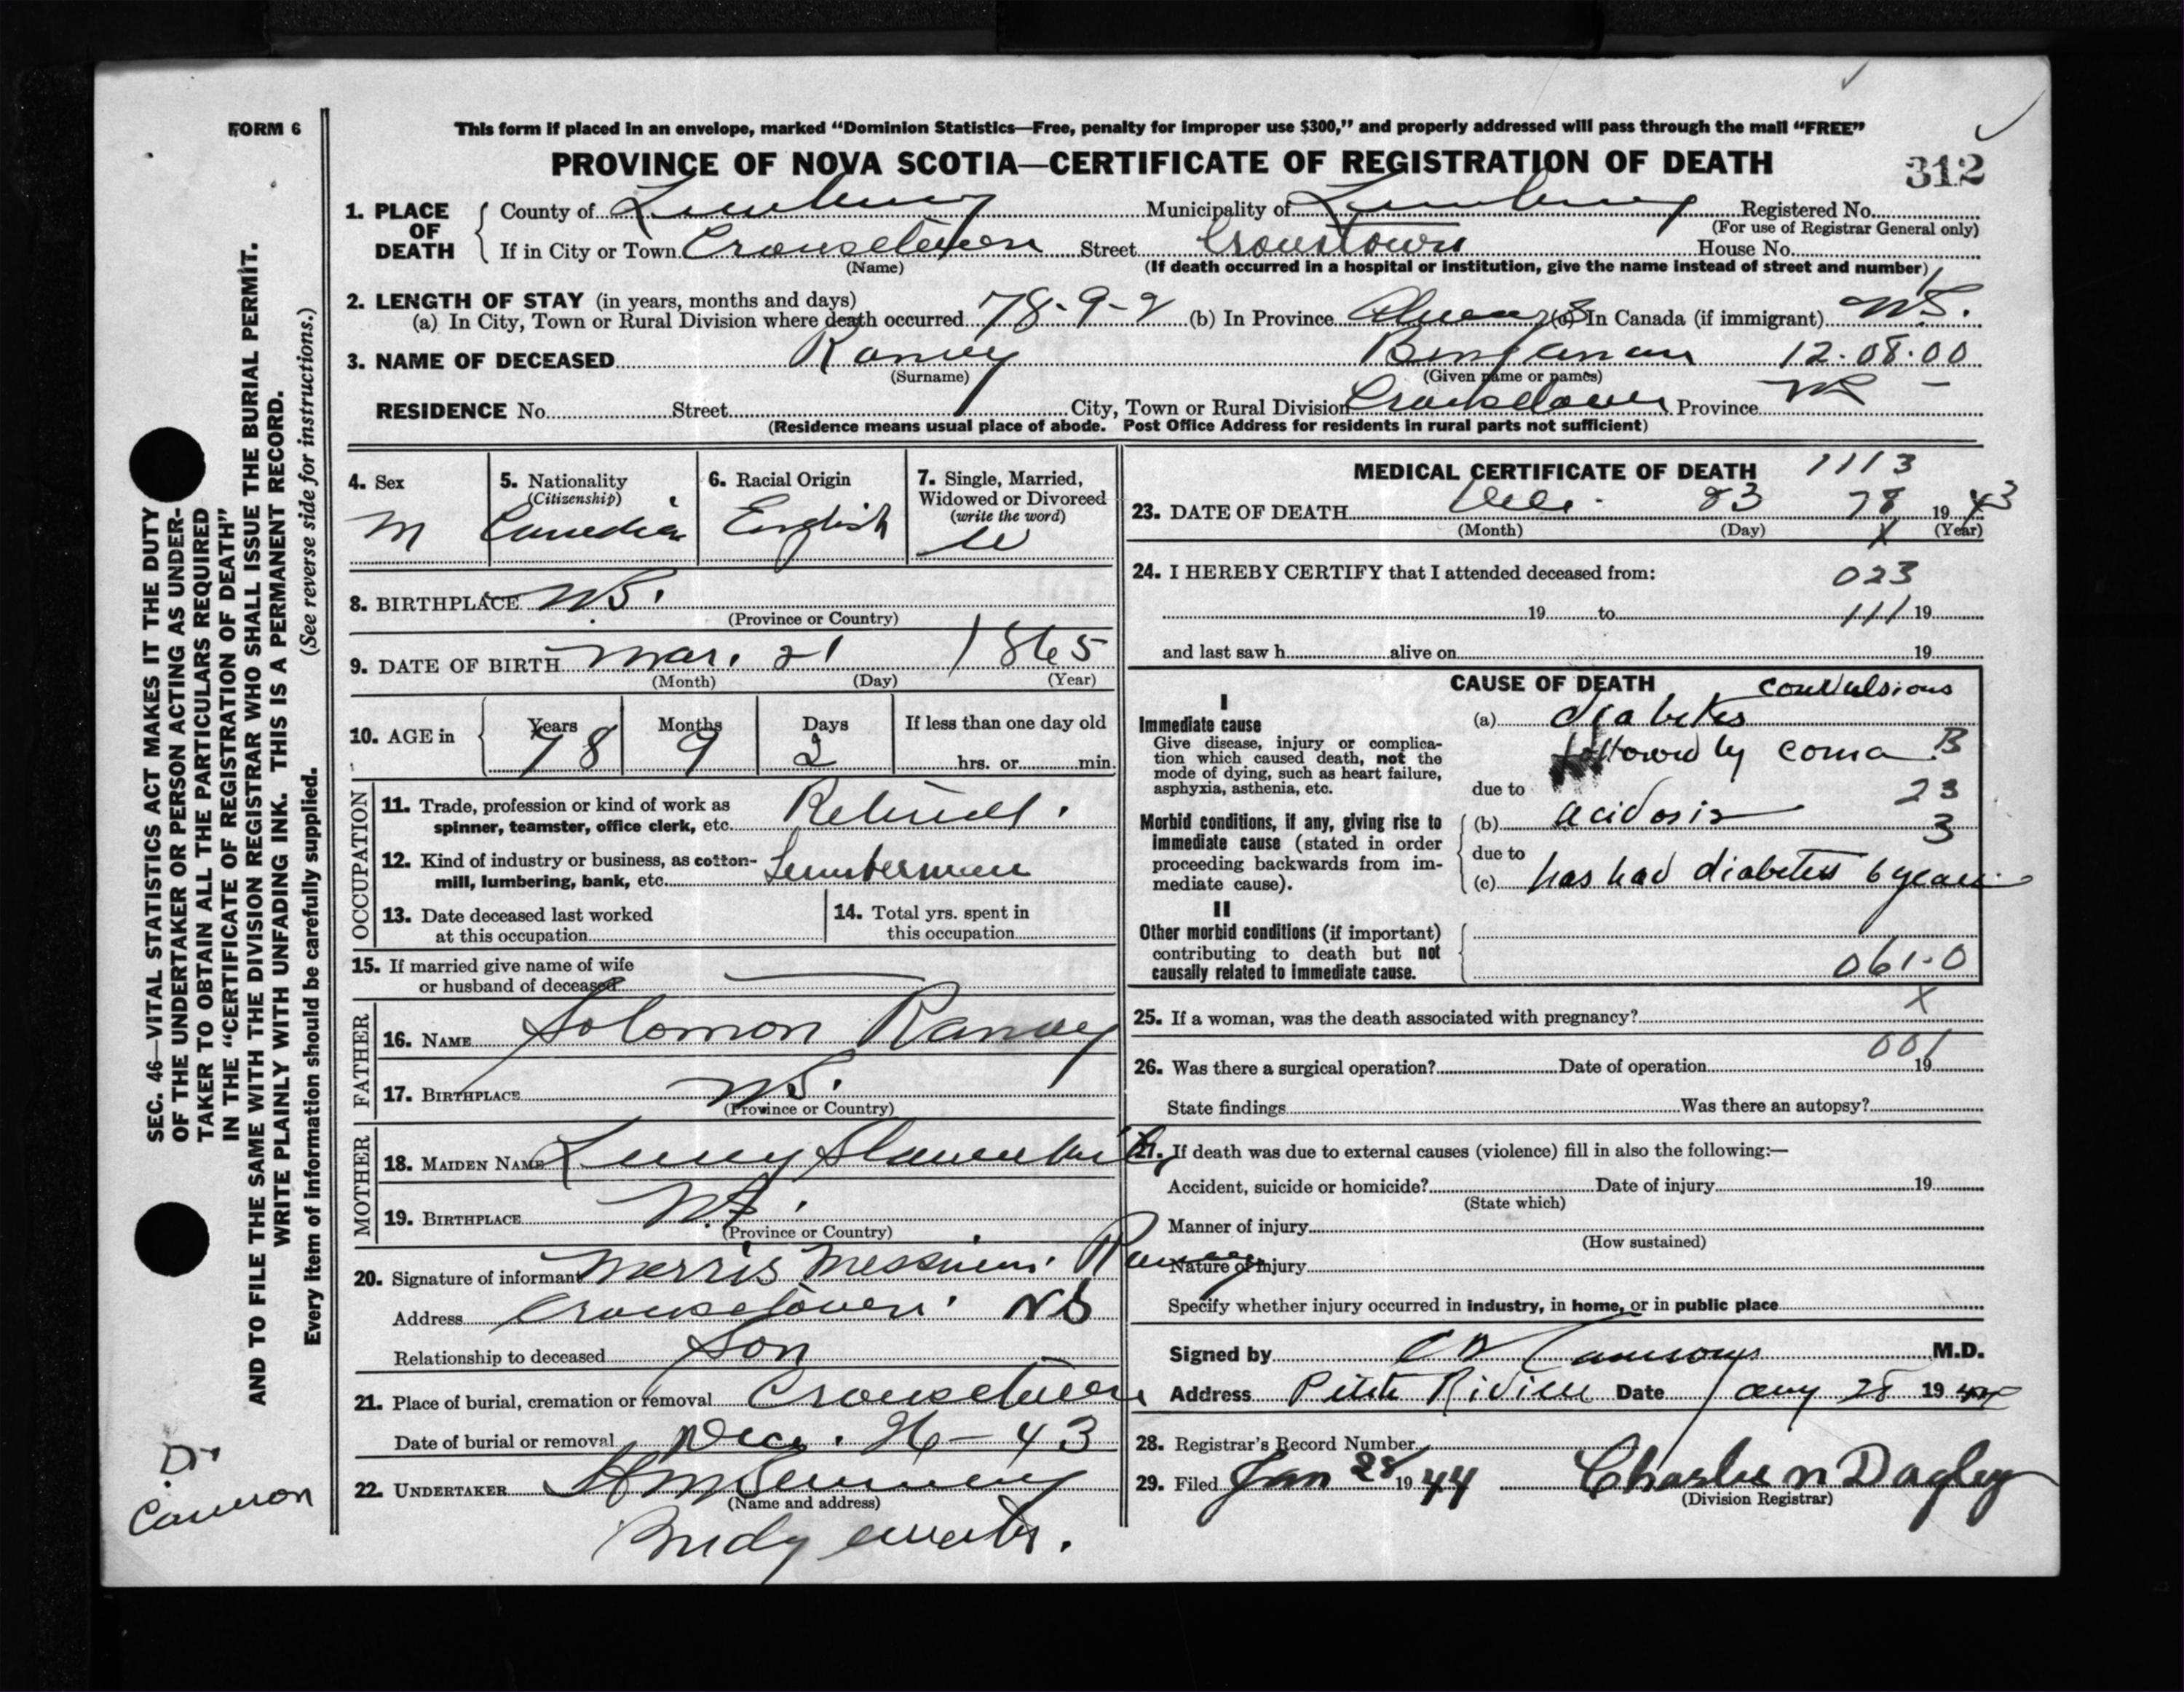 FORM 6
This form if placed in an envelope, marked "Dominion Statistics—Free, penalty for improper use $300," and properly addressed will pass through the mail "FREE"
PROVINCE OF NOVA SCOTIA—CERTIFICATE OF REGISTRATION OF DEATH
312
1. PLACE OF DEATH County of Lunenburg Municipality of Lunenburg Registered No.
(For use of Registrar General only)
If in City or Town Crousetown Street Croustown House No.
(Name) (If death occurred in a hospital or institution, give the name instead of street and number)
2. LENGTH OF STAY (in years, months and days)
(a) In City, Town or Rural Division where death occurred 78-9-2 (b) In Province Always (c) In Canada (if immigrant) N.S.
3. NAME OF DECEASED Ramey 12-08-00
(Surname) (Given name or names)
RESIDENCE No. Street City, Town or Rural Division Crousetown Province NS
(Residence means usual place of abode. Post Office Address for residents in rural parts not sufficient)
4. Sex M
5. Nationality (Citizenship) Canadian
6. Racial Origin English
7. Single, Married, Widowed or Divorced (write the word) W
8. BIRTHPLACE N.S.
(Province or Country)
9. DATE OF BIRTH Mar. 21 1865
(Month) (Day) (Year)
10. AGE in Years 78 Months 9 Days 2 If less than one day old
hrs. or min.
OCCUPATION
11. Trade, profession or kind of work as spinner, teamster, office clerk, etc. Retired.
12. Kind of industry or business, as cotton-mill, lumbering, bank, etc. Lumberman
13. Date deceased last worked at this occupation
14. Total yrs. spent in this occupation
15. If married give name of wife or husband of deceased
FATHER
16. NAME Solomon Ramey
17. BIRTHPLACE N.S.
(Province or Country)
MOTHER
18. MAIDEN NAME
19. BIRTHPLACE N.S.
(Province or Country)
20. Signature of informant Morris Ramey
Address Crousetown. NS
Relationship to deceased Son
21. Place of burial, cremation or removal Crousetown
Date of burial or removal Dec. 26-43
22. UNDERTAKER
(Name and address)
MEDICAL CERTIFICATE OF DEATH 1113
23. DATE OF DEATH Dec. 23 78 1943
(Month) (Day) X (Year)
24. I HEREBY CERTIFY that I attended deceased from: 023
19 to 111 19
and last saw h alive on 19
CAUSE OF DEATH convulsions
I
Immediate cause
Give disease, injury or complication which caused death, not the mode of dying, such as heart failure, asphyxia, asthenia, etc.
(a) diabetes
followed by coma B
due to 23
Morbid conditions, if any, giving rise to immediate cause (stated in order proceeding backwards from immediate cause).
(b) acidosis 3
due to
(c) has had diabetes 6 years
II
Other morbid conditions (if important) contributing to death but not causally related to immediate cause.
061-0
X
25. If a woman, was the death associated with pregnancy?
001
26. Was there a surgical operation? Date of operation 19
State findings Was there an autopsy?
27. If death was due to external causes (violence) fill in also the following:—
Accident, suicide or homicide? Date of injury 19
(State which)
Manner of injury
(How sustained)
Nature of injury
Specify whether injury occurred in industry, in home, or in public place
Signed by M.D.
Address Petite Riviere Date Jany 28 1944
28. Registrar's Record Number
29. Filed Jan 28 1944 Charles N Dagley
(Division Registrar)
SEC. 46—VITAL STATISTICS ACT MAKES IT THE DUTY
OF THE UNDERTAKER OR PERSON ACTING AS UNDER-
TAKER TO OBTAIN ALL THE PARTICULARS REQUIRED
IN THE "CERTIFICATE OF REGISTRATION OF DEATH"
AND TO FILE THE SAME WITH THE DIVISION REGISTRAR WHO SHALL ISSUE THE BURIAL PERMIT.
WRITE PLAINLY WITH UNFADING INK. THIS IS A PERMANENT RECORD.
Every item of information should be carefully supplied. (See reverse side for instructions.)
Dr
Cameron